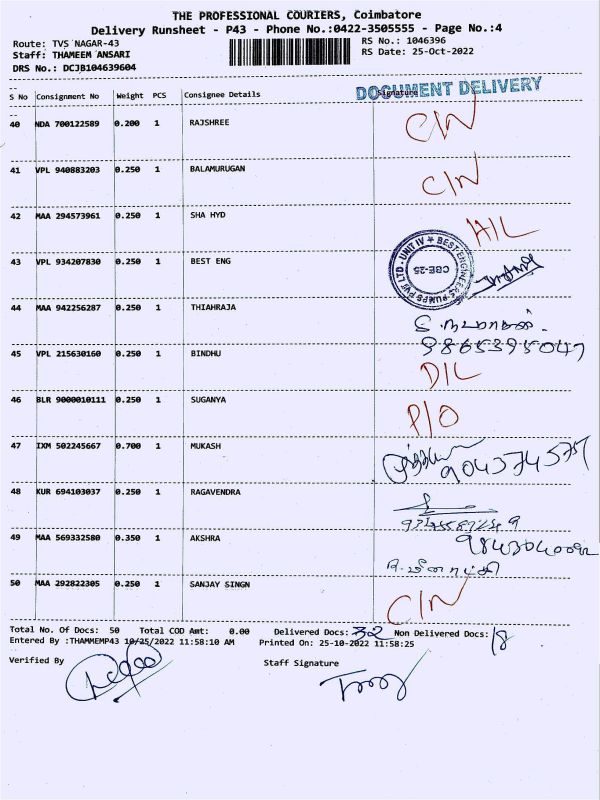 THE PROFESSIONAL COURIERS, Coimbatore
Delivery Runsheet - P43 - Phone No.:0422-3505555 - Page No.:4
Route: TVS NAGAR-43 RS No.: 1046396
Staff: THAMEEM ANSARI RS Date: 25-Oct-2022
DRS No.: DCJB104639604
DOCUMENT DELIVERY
S No Consignment No Weight PCS Consignee Details Signature
40 NDA 700122589 0.200 1 RAJSHREE C/N
41 VPL 940883203 0.250 1 BALAMURUGAN C/N
42 MAA 294573961 0.250 1 SHA HYD H/L
43 VPL 934207830 0.250 1 BEST ENG
BEST ENGINEERS PUMPS PVT LTD - UNIT IV
CBE-25
44 MAA 942256287 0.250 1 THIAHRAJA
9865395047
45 VPL 215630160 0.250 1 BINDHU D/L
46 BLR 9000010111 0.250 1 SUGANYA P/O
47 IXM 502245667 0.700 1 MUKASH
48 KUR 694103037 0.250 1 RAGAVENDRA
49 MAA 569332580 0.350 1 AKSHRA
50 MAA 292822305 0.250 1 SANJAY SINGN C/N
Total No. Of Docs: 50 Total COD Amt: 0.00 Delivered Docs: 32 Non Delivered Docs: 18
Entered By :THAMMEMP43 10/25/2022 11:58:10 AM Printed On: 25-10-2022 11:58:25
Verified By Staff Signature